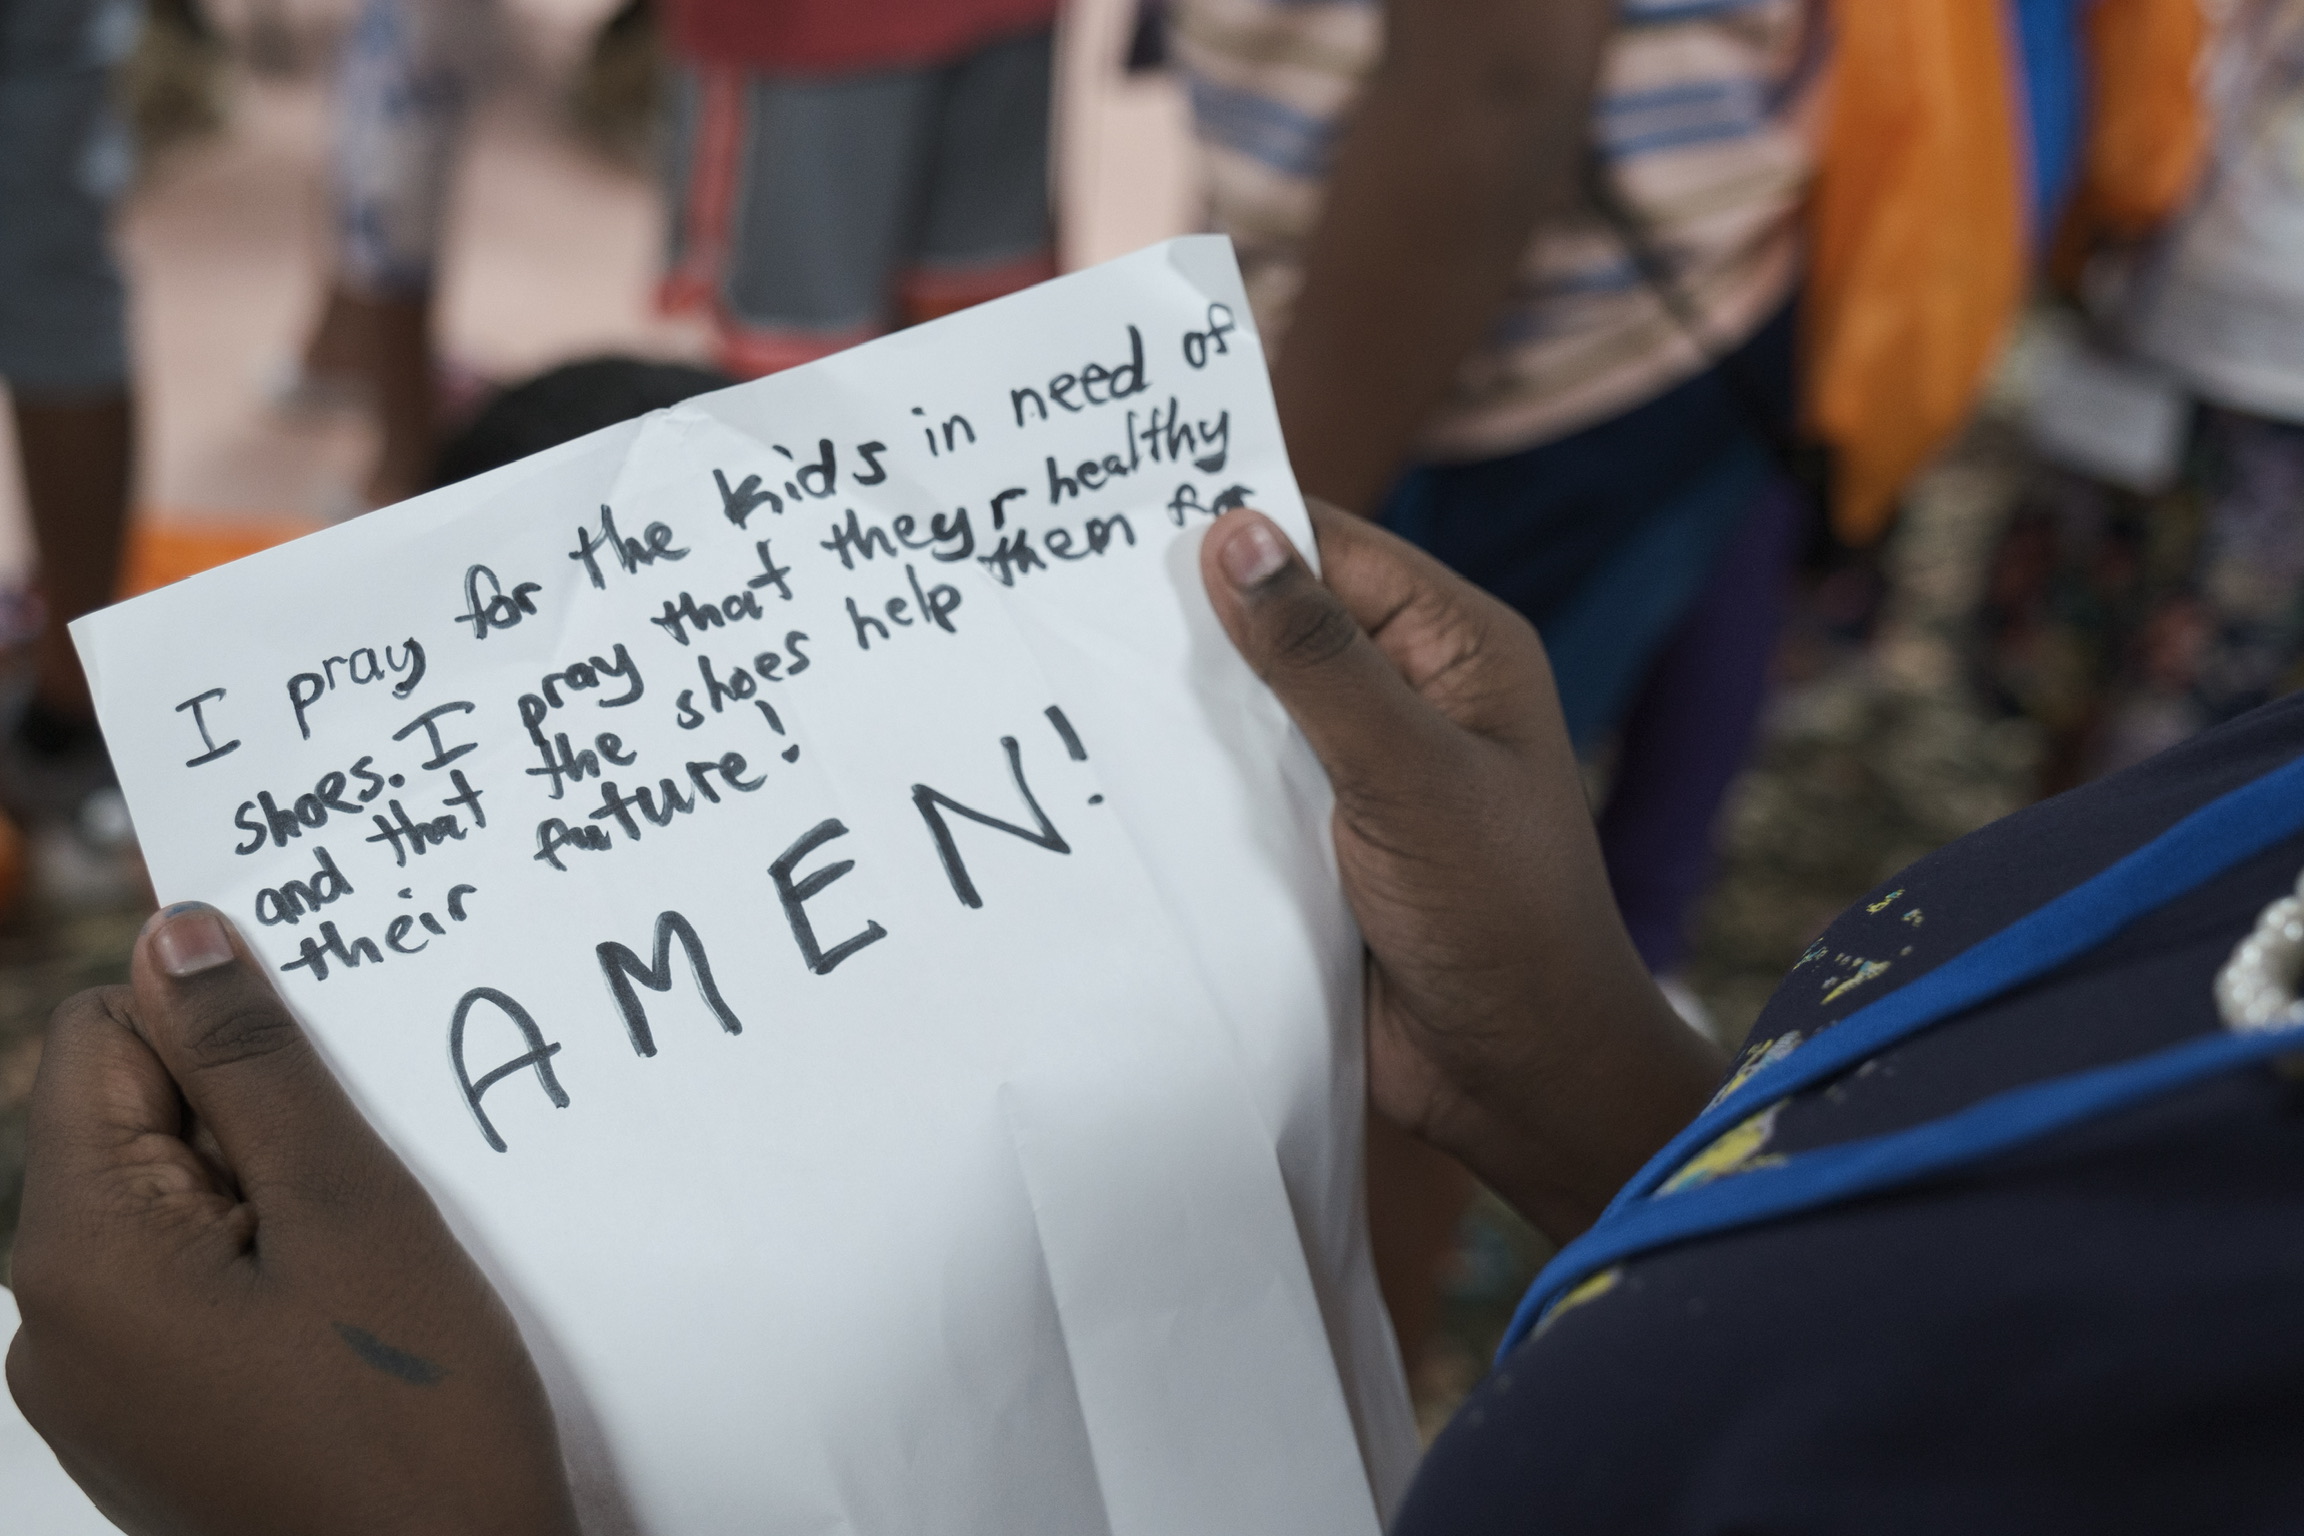 I pray for the kids in need of
shoes. I pray that they r healthy
and that the shoes help them for
their future!
AMEN!